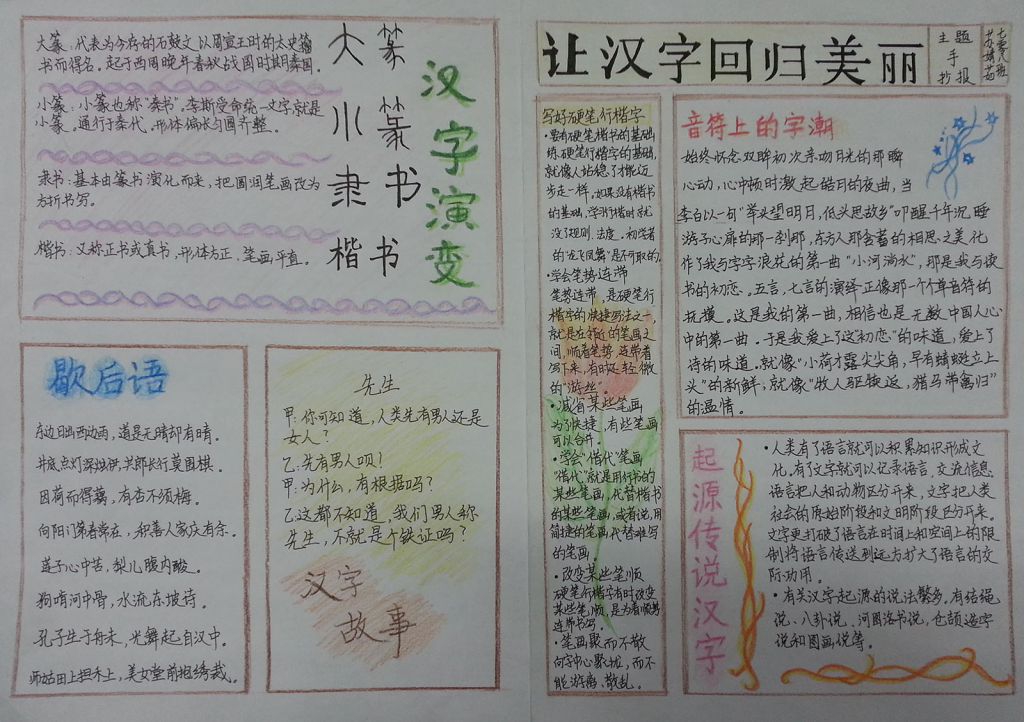 大篆：代表为今存的石鼓文以周宣王时的太史籀
书而得名。起于西周晚年春秋战国时期秦国。
小篆：小篆也称"秦书"。李斯受命统一文字就是
小篆。通行于秦代。形体偏长匀圆齐整。
隶书：基本由篆书演化而来，把圆润笔画改为
方折书写。
楷书：又称正书或真书，形体方正，笔画平直。
大篆
小篆
隶书
楷书
汉字演变
歇后语
东边日出西边雨，道是无晴却有晴。
井底点灯深烛伊，共郎长行莫围棋。
因荷而得藕，有杏不须梅。
向阳门第春常在，积善人家庆有余。
莲子心中苦，梨儿腹内酸。
狗啃河中骨，水流东坡诗。
孔子生于舟末，光舞起自汉中。
师姑田上担禾上，美女堂前抱绣裁。
先生
甲：你可知道，人类先有男人还是
女人？
乙：先有男人呗！
甲：为什么，有根据吗？
乙：这都不知道，我们男人称
先生，不就是个铁证吗？
汉字
故事
让汉字回归美丽
主题
手
抄报
七零八班
苏婧茹
写好硬笔行楷字
·要有硬笔楷书的基础
练硬笔行楷字的基础，
就像人站稳了才能迈
步走一样，如果没有楷书
的基础，学行楷时就
没了规则、法度。初学者
的"龙飞凤舞"是不可取的。
·学会笔势连带
笔势连带，是硬笔行
楷字的快捷写法之一，
就是在邻近的笔画之
间，顺着笔势连带着
写下来，有时还轻微
的"游丝"。
·减省某些笔画
为了快捷，有些笔画
可以合并。
·学会"借代"笔画
"借代"就是用行书的
某些笔画，代替楷书
的某些笔画，或者说，用
简捷的笔画代替难写
的笔画
·改变某些笔顺
硬笔行楷字有时改变
某些笔顺，是为着顺势
连带书写。
·笔画聚而不散
向字中心聚拢，而不
能游离、散乱。
音符上的字潮
始终怀念双眸初次亲吻月光的那瞬
心动，心中顿时激起皓月的夜曲，当
李白以一句"举头望明月，低头思故乡"叩醒千年沉睡
游子心扉的那一刹那，东方人那含蓄的相思之美化
作了我与字字浪花的第一曲"小河淌水"，那是我与读
书的初恋。五言，七言的演绎正像那一个个单音符的
抚摸。这是我的第一曲，相信也是无数中国人心
中的第一曲。于是我爱上了这"初恋"的味道，爱上了
诗的味道。就像"小荷才露尖尖角，早有蜻蜓立上
头"的新鲜；就像"牧人驱犊返，猎马带禽归"
的温情。
起源传说汉字
·人类有了语言就可以积累知识形成文
化，有了文字就可以记录语言，交流信息
语言把人和动物区分开来，文字把人类
社会的原始阶段和文明阶段区分开来。
文字更打破了语言在时间上和空间上的限
制将语言传送到远方扩大了语言的交
际功用。
·有关汉字起源的说法繁多。有结绳
说、八卦说、河图洛书说，仓颉造字
说和图画说等。